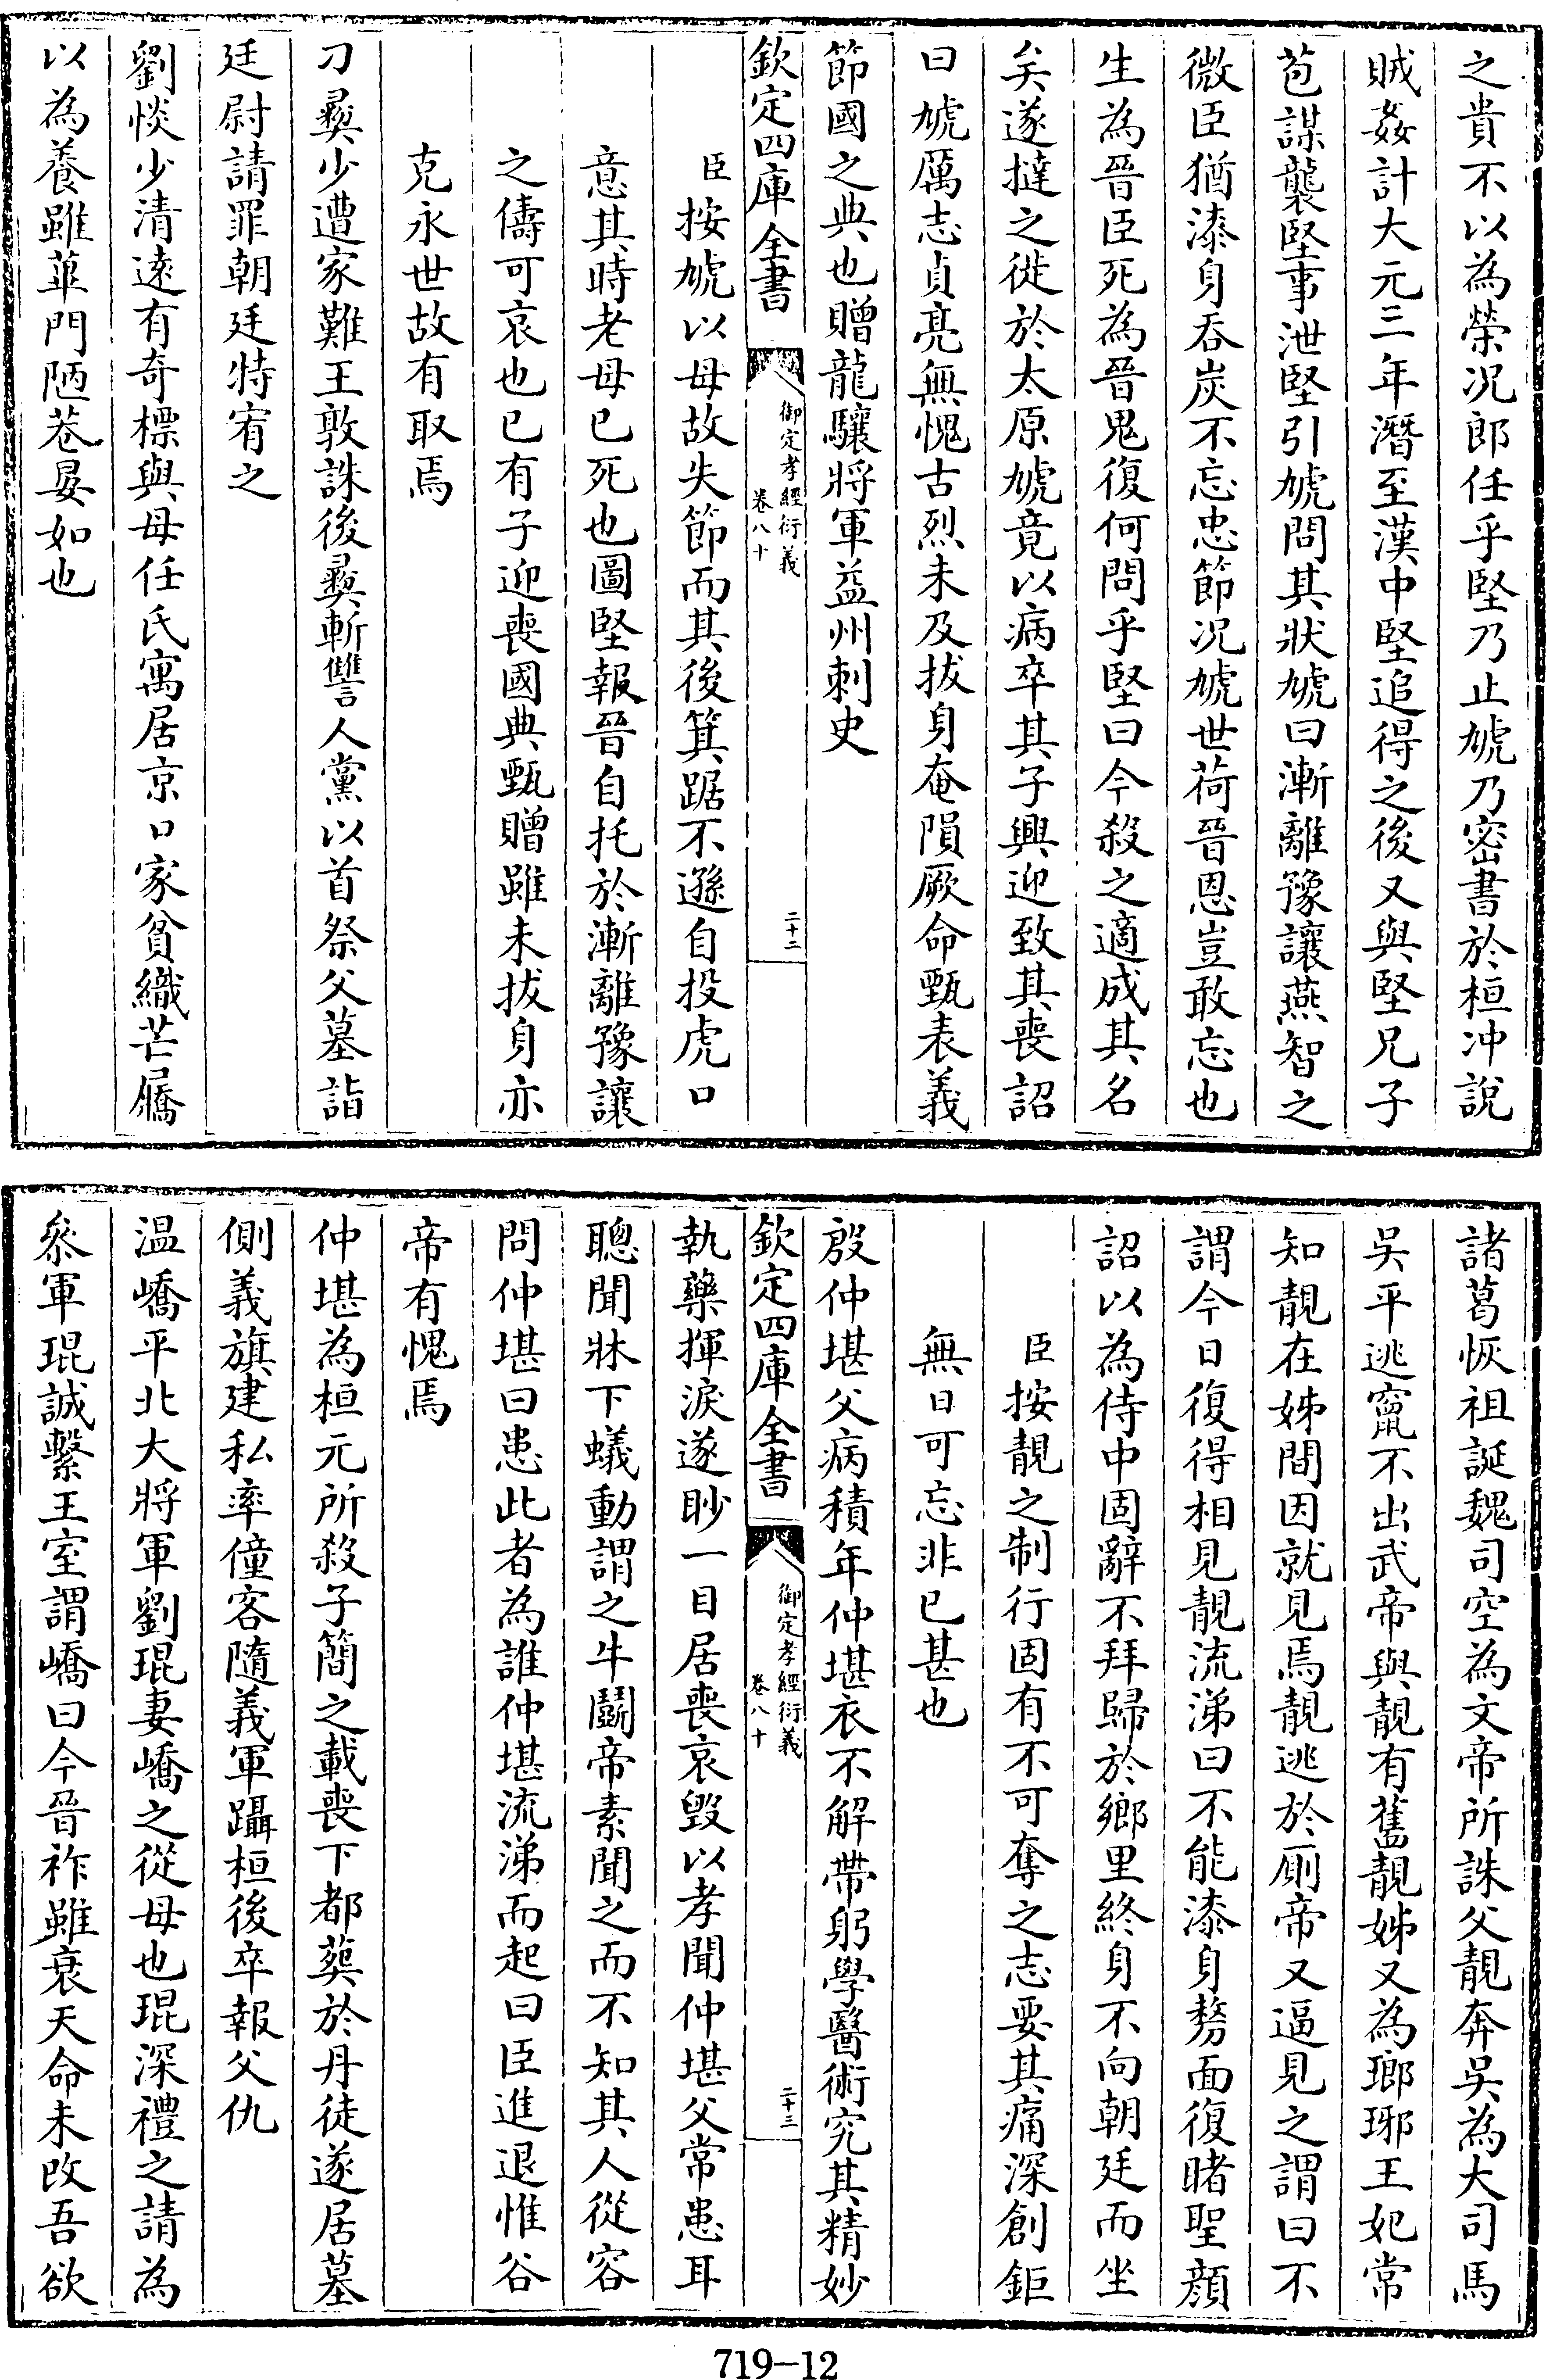 之貴不以為榮况郎任乎堅乃止虓乃密書於桓冲說
賊姦計大元三年潛至漢中堅追得之後又與堅兄子
苞謀襲堅事泄堅引虓問其狀虓曰漸離豫讓燕智之
微臣猶漆身吞炭不忘忠節况虓世荷晉恩豈敢忘也
生為晉臣死為晉鬼復何問乎堅曰今殺之適成其名
矣遂撻之徙於太原虓竟以病卒其子興迎致其喪詔
曰虓厲志貞亮無愧古烈未及拔身奄隕厥命甄表義
節國之典也贈龍驤將軍益州刺史
欽定四庫全書
御定孝經衍義
卷八十
二十二
臣按虓以母故失節而其後箕踞不遜自投虎口
意其時老母已死也圖堅報晉自托於漸離豫讓
之儔可哀也已有子迎喪國典甄贈雖未拔身亦
克永世故有取焉
刁彞少遭家難王敦誅後彞斬讐人黨以首祭父墓詣
廷尉請罪朝廷特宥之
劉惔少清遠有奇標與母任氏寓居京口家貧織芒屩
以為養雖蓽門陋巷晏如也
諸葛恢祖誕魏司空為文帝所誅父靚奔吳為大司馬
吳平逃竄不出武帝與靚有舊靚姊又為瑯琊王妃常
知靚在姊間因就見焉靚逃於厠帝又逼見之謂曰不
謂今日復得相見靚流涕曰不能漆身剺面復睹聖顔
詔以為侍中固辭不拜歸於鄉里終身不向朝廷而坐
臣按靚之制行固有不可奪之志要其痛深創鉅
無日可忘非已甚也
殷仲堪父病積年仲堪衣不解帶躬學醫術究其精妙
欽定四庫全書
御定孝經衍義
卷八十
二十三
執藥揮淚遂眇一目居喪哀毀以孝聞仲堪父常患耳
聰聞牀下蟻動謂之牛鬭帝素聞之而不知其人從容
問仲堪曰患此者為誰仲堪流涕而起曰臣進退惟谷
帝有愧焉
仲堪為桓元所殺子簡之載喪下都葬於丹徒遂居墓
側義旗建私率僮客隨義軍躡桓後卒報父仇
温嶠平北大將軍劉琨妻嶠之從母也琨深禮之請為
叅軍琨誠繫王室謂嶠曰今晉祚雖衰天命未改吾欲
719-12